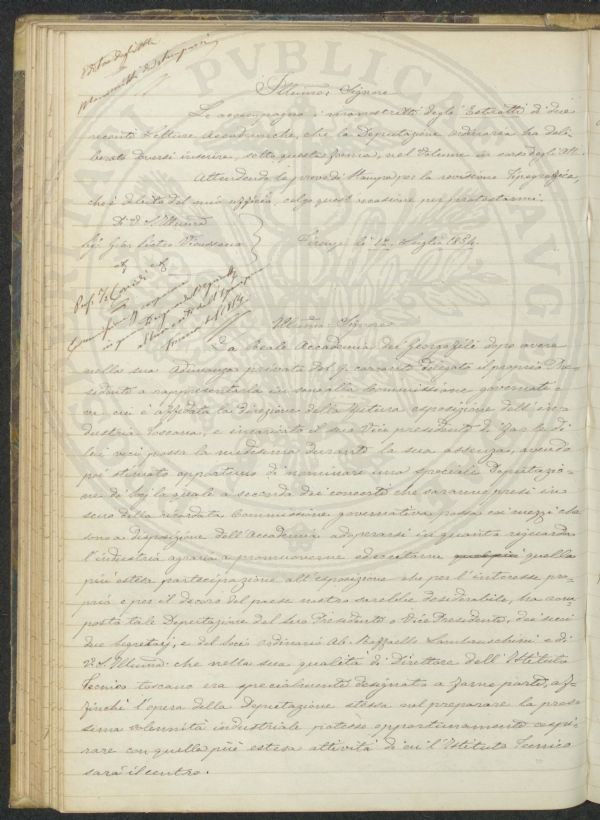 Illumo: Signore
Le accompagno i manoscritti degli Estratti di due
recenti Letture Accademiche, che la Deputazione ordinaria ha deli-
berato doversi inserire, sotto questa forma, nel Volume in corso degli Atti.
Attendendo le prove di Stampa, per la revisione tipografica,
che è debito del mio uffizio, colgo quest'occasione per protestarmi.
Di V. S. Illuma
Sig: Gian Pietro Vieusseux
Firenze li 12 Luglio 1854.
Prof: F. Corridi
Illumo: Signore
La Reale Accademia dei Georgofili dopo avere
nella sua Adunanza privata del 9 corrente delegato il proprio Pre-
sidente a rappresentarla in seno alla Commissione governati-
va cui è affidata la direzione della futura esposizione dell'in-
dustria toscana, e incaricato il suo Vice presidente di far le di
lui veci presso la medesima durante la sua assenza, avendo
poi stimato opportuno di nominare una speciale Deputazio-
ne la quale a seconda dei concerti che saranno presi in
seno della ricordata Commissione governativa possa coi mezzi che
sono a disposizione dell'Accademia adoperarsi in quanto riguarda
l'industria agraria a promuoverne ed eccitarne quella
più estesa partecipazione all'esposizione che per l'interesse pro-
prio e per il decoro del paese nostro sarebbe desiderabile, ha com-
posta tale Deputazione del suo Presidente o Vice Presidente, dei suoi
due Segretarj, e del socio ordinario Ab. Raffaello Lambruschini e di
V. S. Illuma: che nella sua qualità di Direttore dell'Istituto
Tecnico toscano era specialmente designato a farne parte, af-
finchè l'opera della Deputazione stessa nel preparare la pros-
sima solennità industriale potesse opportunamente cospi-
rare con quella più estesa attività di cui l'Istituto Tecnico
sarà il centro.